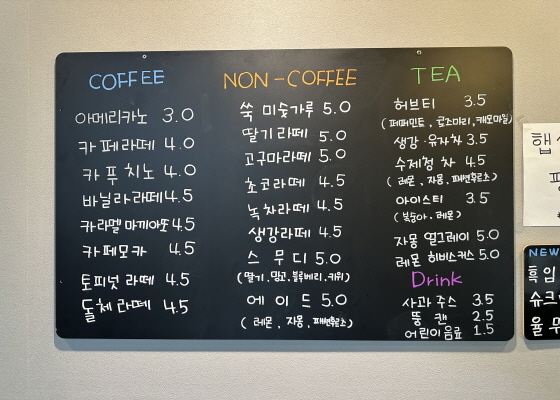 COFFEE
아메리카노 3.0
카페라떼 4.0
카푸치노 4.0
바닐라라떼 4.5
카라멜 마끼아또 4.5
카페모카 4.5
토피넛 라떼 4.5
돌체 라떼 4.5
NON-COFFEE
쑥 미숫가루 5.0
딸기라떼 5.0
고구마라떼 5.0
초코라떼 4.5
녹차라떼 4.5
생강라떼 4.5
스무디 5.0
(딸기, 망고, 블루베리, 키위)
에이드 5.0
(레몬, 자몽, 패션후르츠)
TEA
허브티 3.5
(페퍼민트, 캐모마일)
생강·유자차 3.5
수제청 차 4.5
(레몬, 자몽, 패션후르츠)
아이스티 3.5
(복숭아, 레몬)
자몽 얼그레이 5.0
레몬 히비스커스 5.0
Drink
사과 주스 3.5
뚱 캔 2.5
어린이음료 1.5
햅
NEW
흑임
슈크
율무